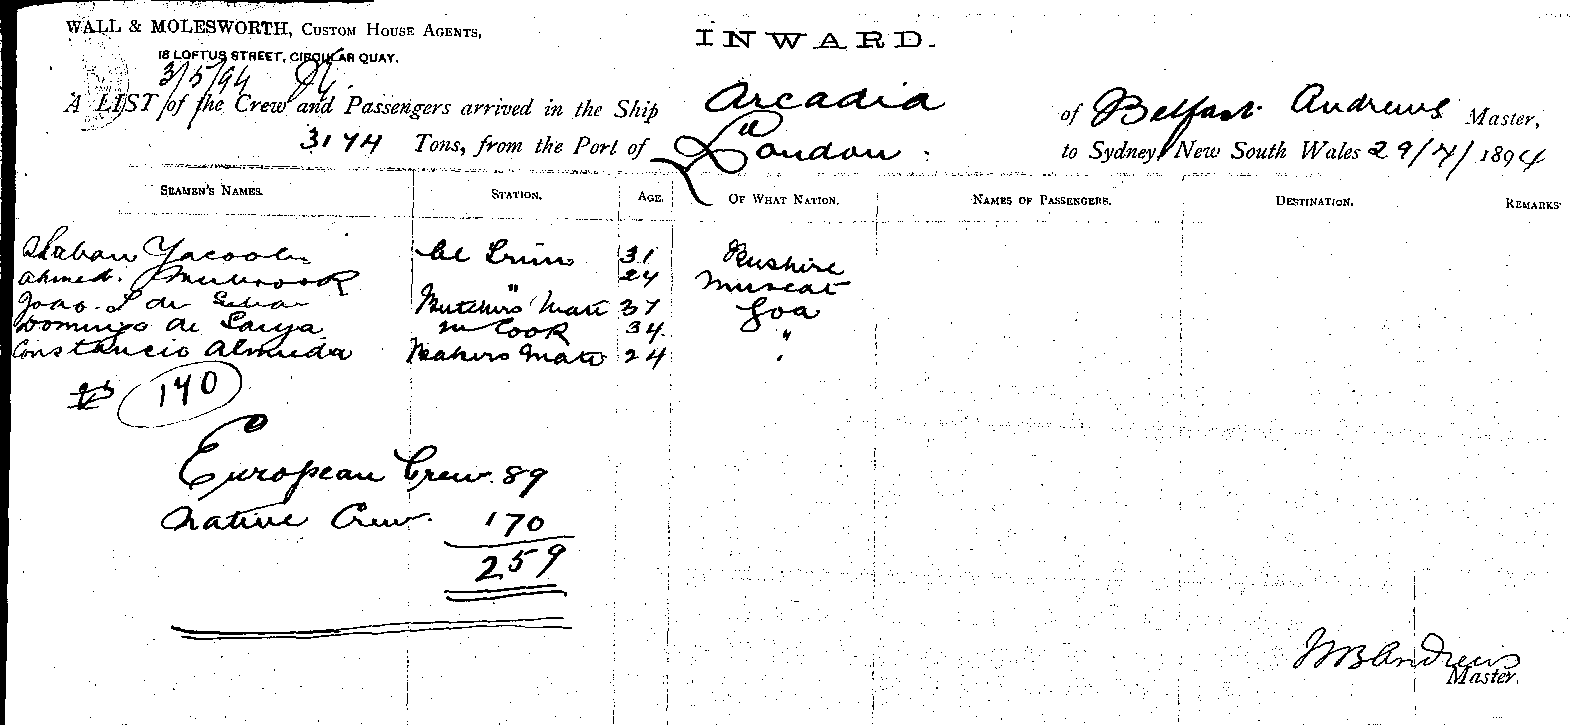 WALL & MOLESWORTH, CUSTOM HOUSE AGENTS,
18 LOFTUS STREET, CIRCULAR QUAY.
INWARD.
3/5/94
A LIST of the Crew and Passengers arrived in the Ship Arcadia of Belfast Andrews Master,
3174 Tons, from the Port of London. to Sydney, New South Wales 29/4/1894
SEAMEN'S NAMES. STATION. AGE. OF WHAT NATION. NAMES OF PASSENGERS. DESTINATION. REMARKS
Shaban Yacoob Cl Trim 31 Bushire
Ahmed Mubrook " 24 Muscat
Joao. S de Butchers Mate 37 Goa
Domingo de m Cook 34 "
Constancio Almeda Bakers Mate 24 "
170
European Crew. 89
Native Crew. 170
259
WBAndrews
Master.